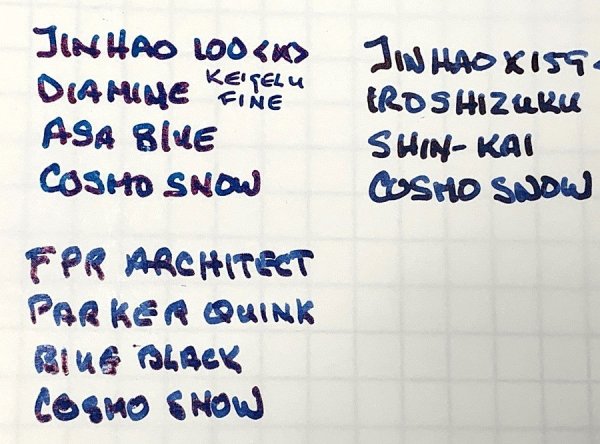 JINHAO 100 <K>
DIAMINE KEIGELU FINE
ASA BLUE
COSMO SNOW
JINHAO X159
IROSHIZUKU
SHIN-KAI
COSMO SNOW
FPR ARCHITECT
PARKER QUINK
BLUE BLACK
COSMO SNOW